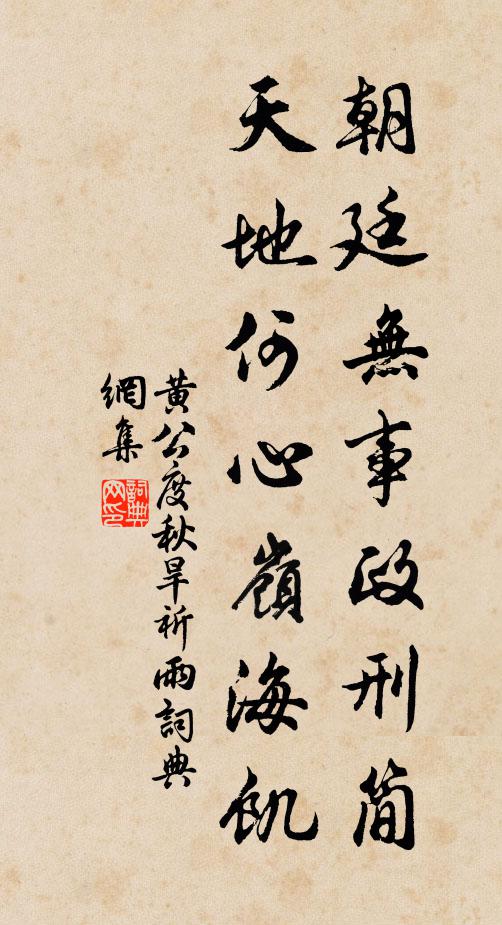 朝廷無事政刑簡
天地何心嶺海飢
黃公度秋旱祈雨詞典
網集
詞典
网印